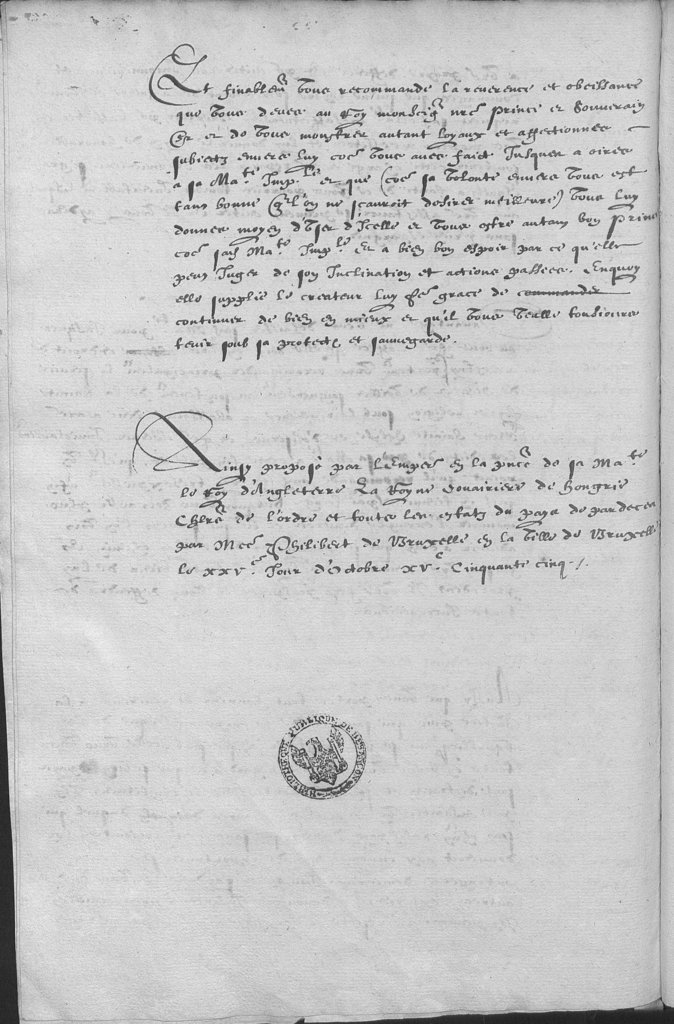 Et finablem̃ vous recommande la reverence et obeissance
que vous devez au Roy monsg̃r nr̃e Prince et Souverain
Sr̃ et de vous monstrer autant loyaux et affectionnez
subiectz envers luy cõe vous avez faict Jusques a oires
a sa Ma.te Imp.le et que (cõe sa volonte envers vous est
tant bonne q̃ l'on ne scauroit desirer meilleure) vous luy
donnez moyen d'user d'Icelle et vous estre autant bon Prince
cõe sad. Ma.te Imp.le Et a bien bon espoir par ce qu'elle
peut Juger de son Inclination et actions passees. Enquoy
elle supplie le createur luy fẽ grace de commander
continuer de bien en mieux et qu'il vous veulle tousiours
tenir soub sa protect. et sauvegarde.
Ainsy propose par l'emper̃ en la pñce de sa Ma.te
le Roy d'Angleterre La Royne douairiere de Hongrie
Chlr̃s de l'ordre et toute les estatz du pays de pardeca
par Mre Philibert de Bruxelle en la ville de Bruxelle
le xxv.e Jour d'Octobre xv.c Cinquante cinq ./.
BIBLIOTHEQUE PUBLIQUE DE BESANÇON